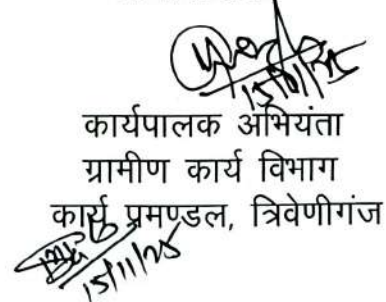 15/11/25
कार्यपालक अभियंता
ग्रामीण कार्य विभाग
कार्य प्रमण्डल, त्रिवेणीगंज
15/11/25